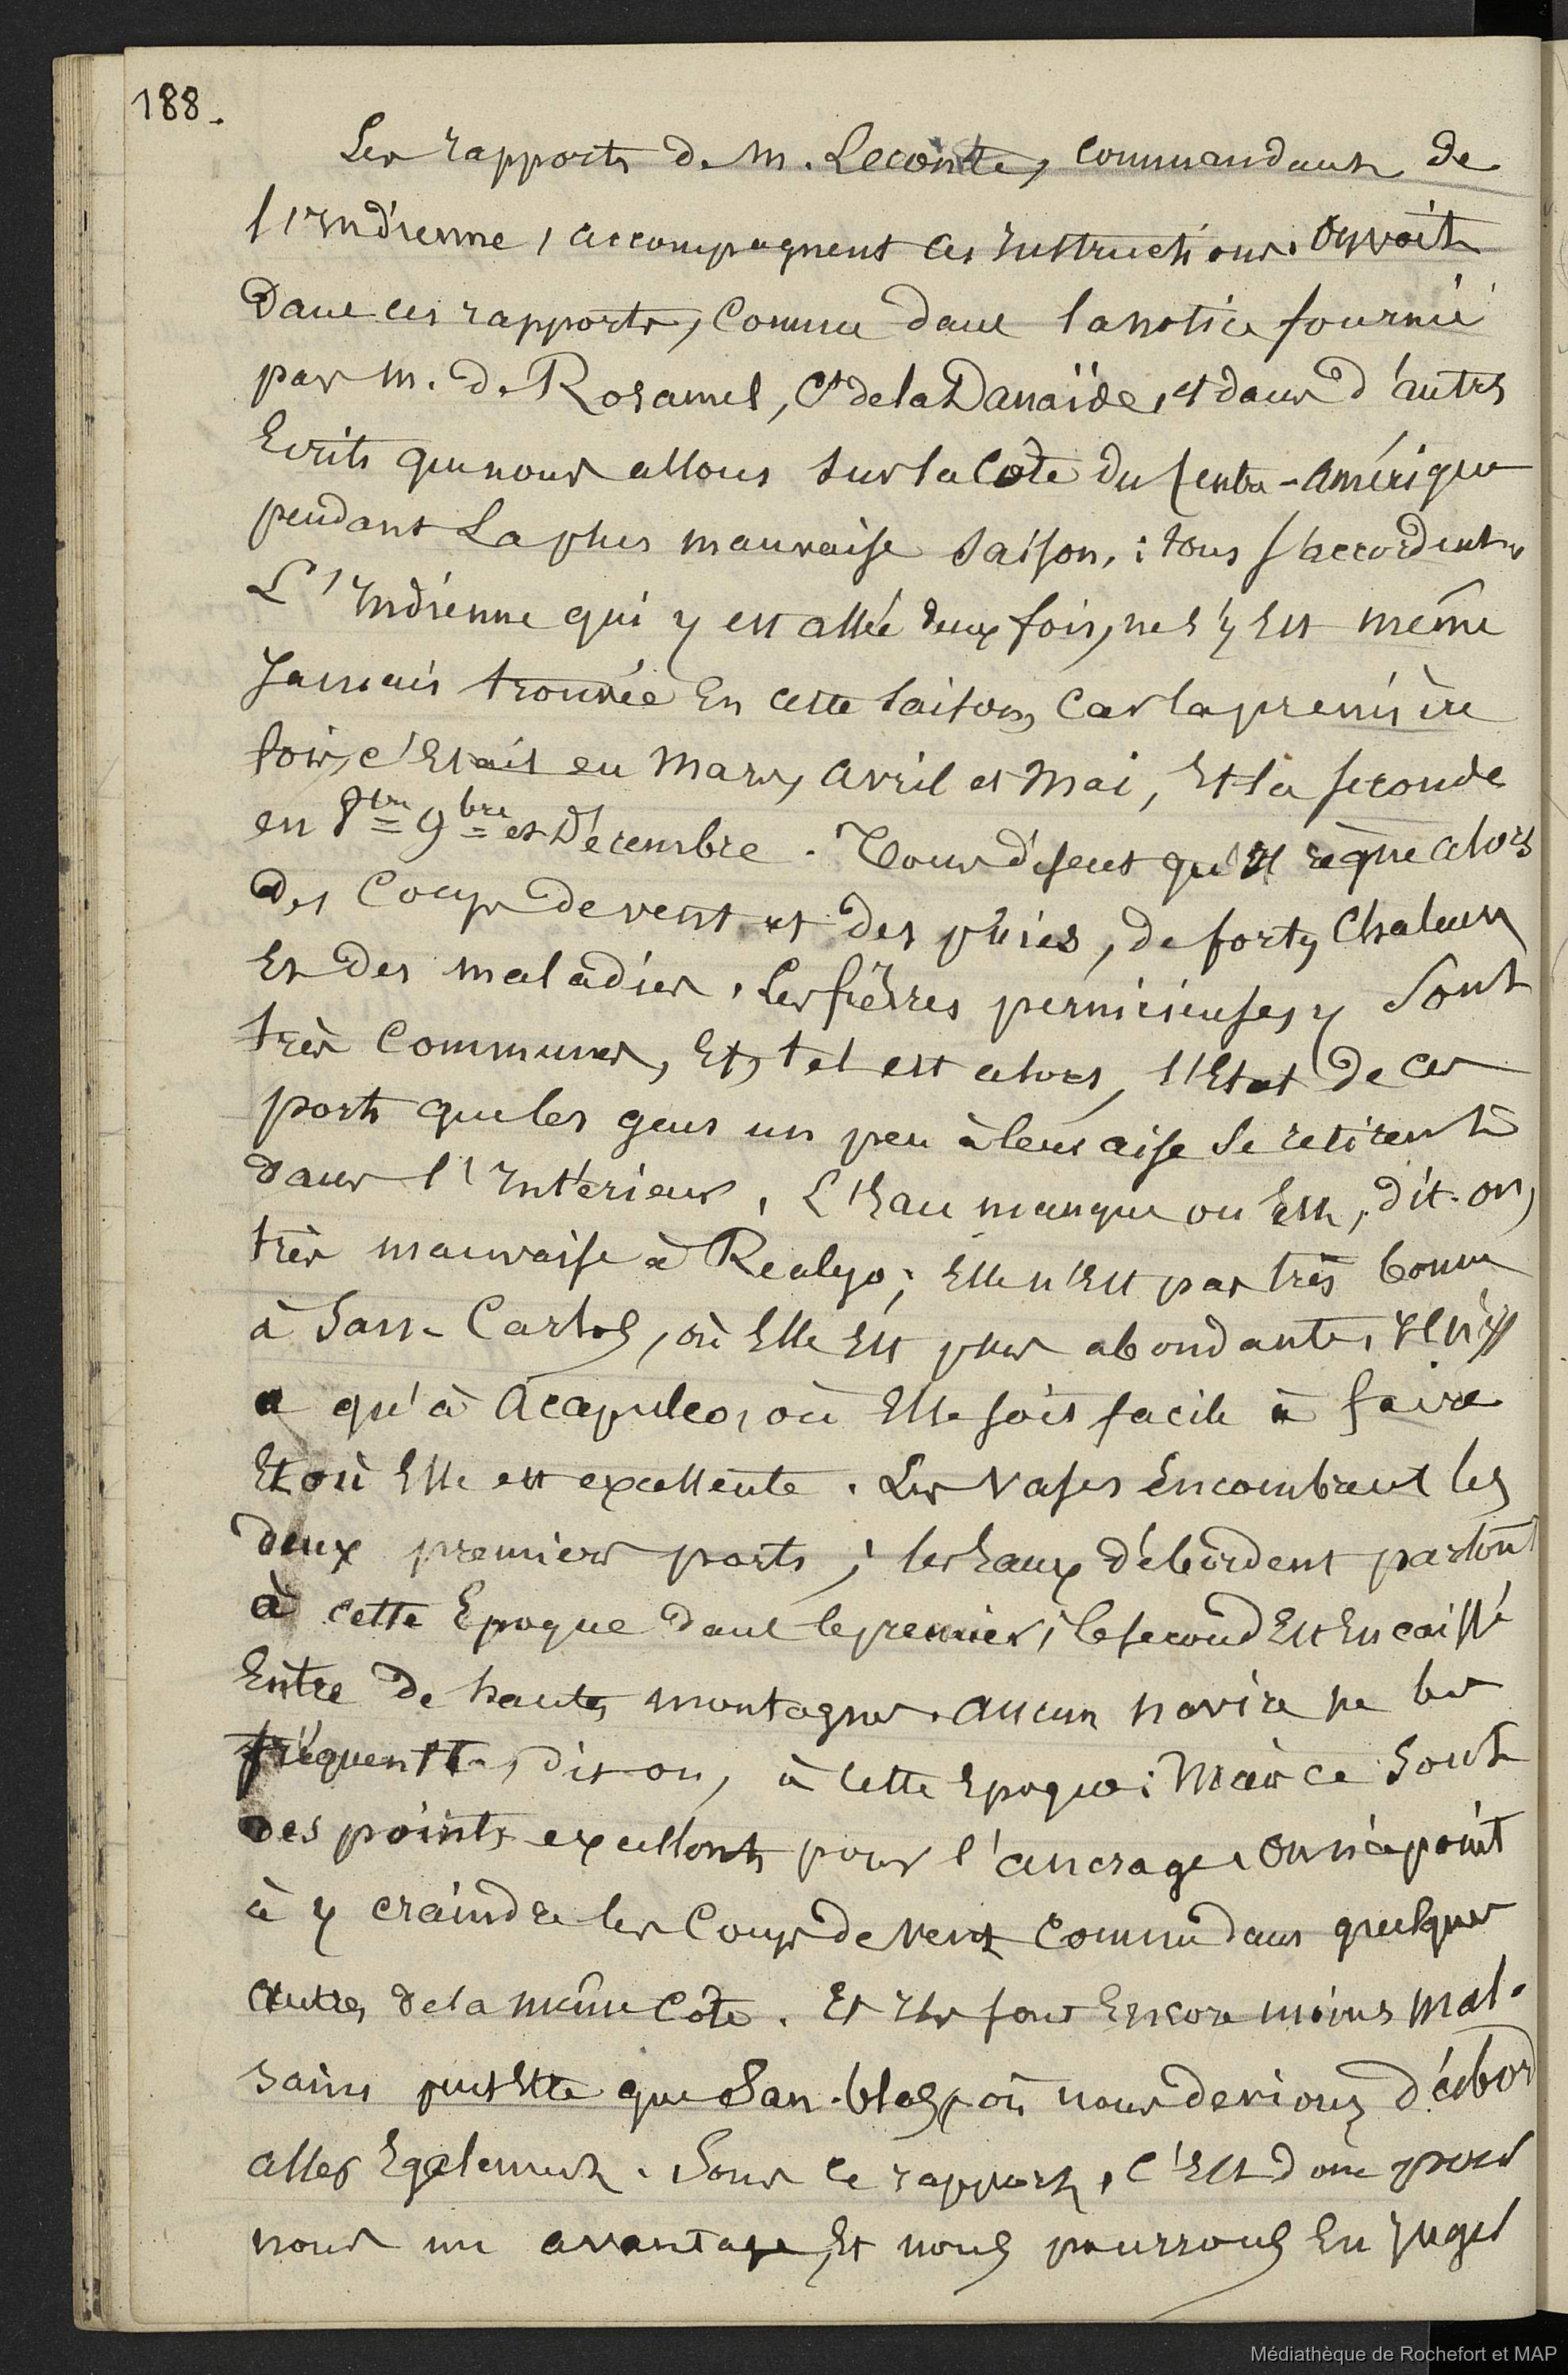 188.
Les rapports de M. Leconte, commandant de
l'Indienne, accompagnent ces instructions. On voit
dans ces rapports, comme dans la notice fournie
par M. de Rosamel, Ct de la Danaïde, et dans d'autres
Ecrits que nous allons sur la Côte du Centre-Amérique
pendant La plus mauvaise Saison, : tous s'accordent.
L'Indienne qui y est allée deux fois, ne s'y Est même
Jamais trouvée En cette saison, Car la première
fois, c'Etait en Mars, Avril et Mai, Et la seconde
en 8bre 9bre et Décembre. Tous disent qu'il règne alors
des Coups de vent et des pluies, de fortes Chaleurs
Et des maladies. Les fièvres pernicieuses y sont
très Communes, Et, tel est alors, l'Etat de ces
ports que les gens un peu à leur aise se retirent
dans l'Intérieur. L'Eau manque ou Est, dit-on,
très mauvaise à Realejo; Elle n'Est pas très bonne
à San-Carlos, où Elle Est plus abondante. Il n'y
a qu'à Acapulco, où Elle soit facile à faire
Et où Elle est excellente. Les vases Encombrent les
deux premiers ports; les Eaux débordent partout
à cette Epoque dans le premier; le second Est Encaissé
Entre de hautes montagnes. Aucun navire ne les
fréquente, dit on, à cette Epoque: Mais ce sont
des points excellents pour l'ancrage. On n'a point
à y craindre les Coups de Vent Comme dans quelques
Autres de la même Côte. Et Ils sont Encore moins mal-
sains peut Etre que San-blas, où nous devions d'abord
aller Egalement. Sous ce rapport, c'Est donc pour
nous un avantage, Et nous pourrons En juger
Médiathèque de Rochefort et MAP